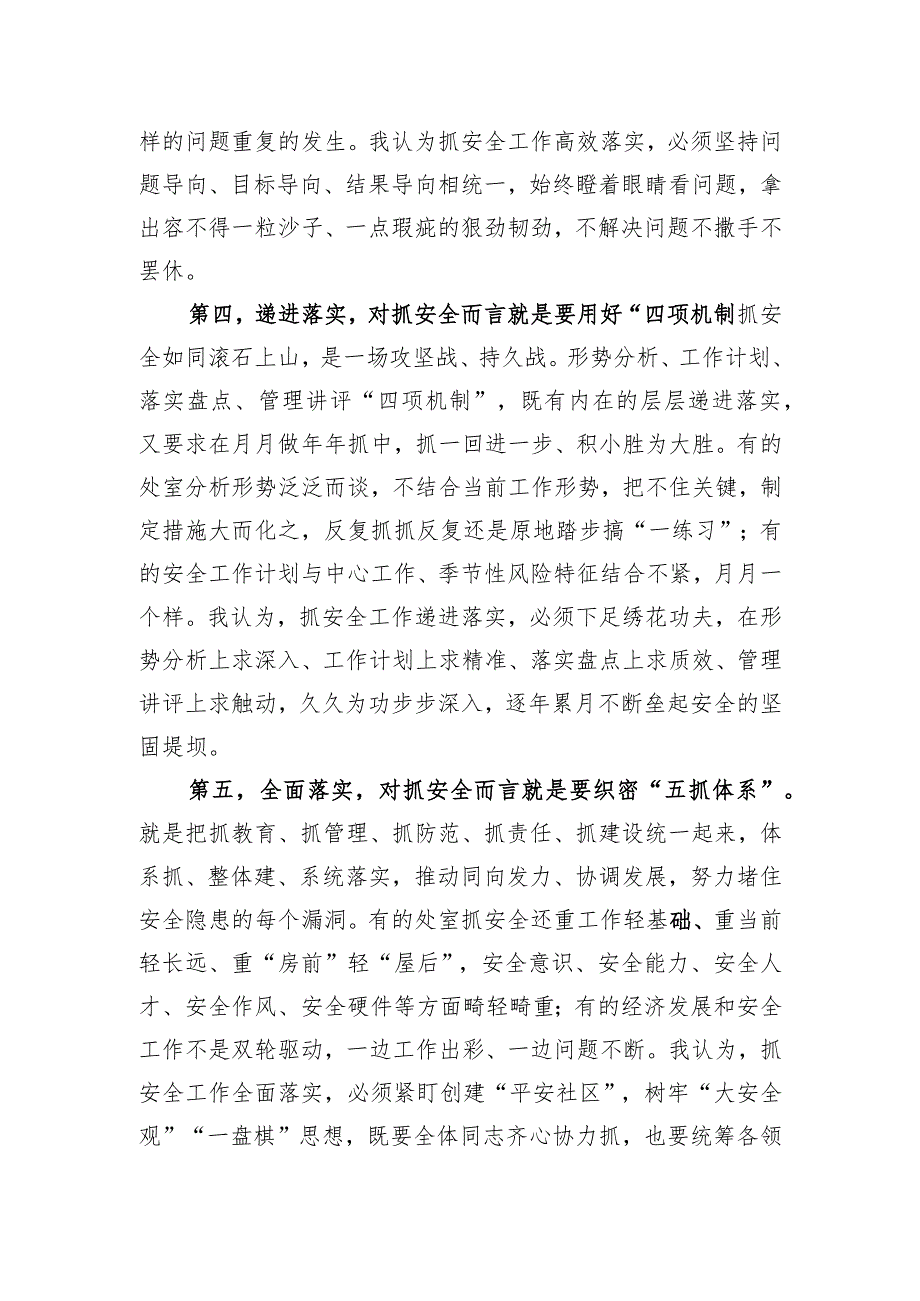 样的问题重复的发生。我认为抓安全工作高效落实，必须坚持问
题导向、目标导向、结果导向相统一，始终瞪着眼睛看问题，拿
出容不得一粒沙子、一点瑕疵的狠劲韧劲，不解决问题不撒手不
罢休。
第四，递进落实，对抓安全而言就是要用好“四项机制抓安
全如同滚石上山，是一场攻坚战、持久战。形势分析、工作计划、
落实盘点、管理讲评“四项机制”，既有内在的层层递进落实，
又要求在月月做年年抓中，抓一回进一步、积小胜为大胜。有的
处室分析形势泛泛而谈，不结合当前工作形势，把不住关键，制
定措施大而化之，反复抓抓反复还是原地踏步搞“一练习”；有
的安全工作计划与中心工作、季节性风险特征结合不紧，月月一
个样。我认为，抓安全工作递进落实，必须下足绣花功夫，在形
势分析上求深入、工作计划上求精准、落实盘点上求质效、管理
讲评上求触动，久久为功步步深入，逐年累月不断垒起安全的坚
固堤坝。
第五，全面落实，对抓安全而言就是要织密“五抓体系”。
就是把抓教育、抓管理、抓防范、抓责任、抓建设统一起来，体
系抓、整体建、系统落实，推动同向发力、协调发展，努力堵住
安全隐患的每个漏洞。有的处室抓安全还重工作轻基础、重当前
轻长远、重“房前”轻“屋后”，安全意识、安全能力、安全人
才、安全作风、安全硬件等方面畸轻畸重；有的经济发展和安全
工作不是双轮驱动，一边工作出彩、一边问题不断。我认为，抓
安全工作全面落实，必须紧盯创建“平安社区”，树牢“大安全
观”“一盘棋”思想，既要全体同志齐心协力抓，也要统筹各领